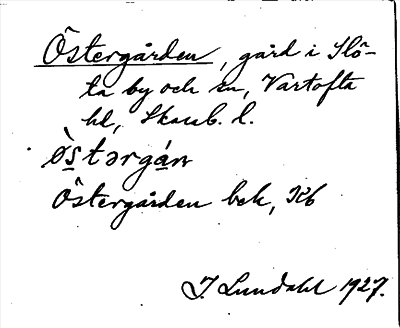 Östergården, gård i Slö-
ta by och sn, Vartofta
hd, Skarab. l.
östərgán
Östergården bek, Kb
J. Lundahl 1927.